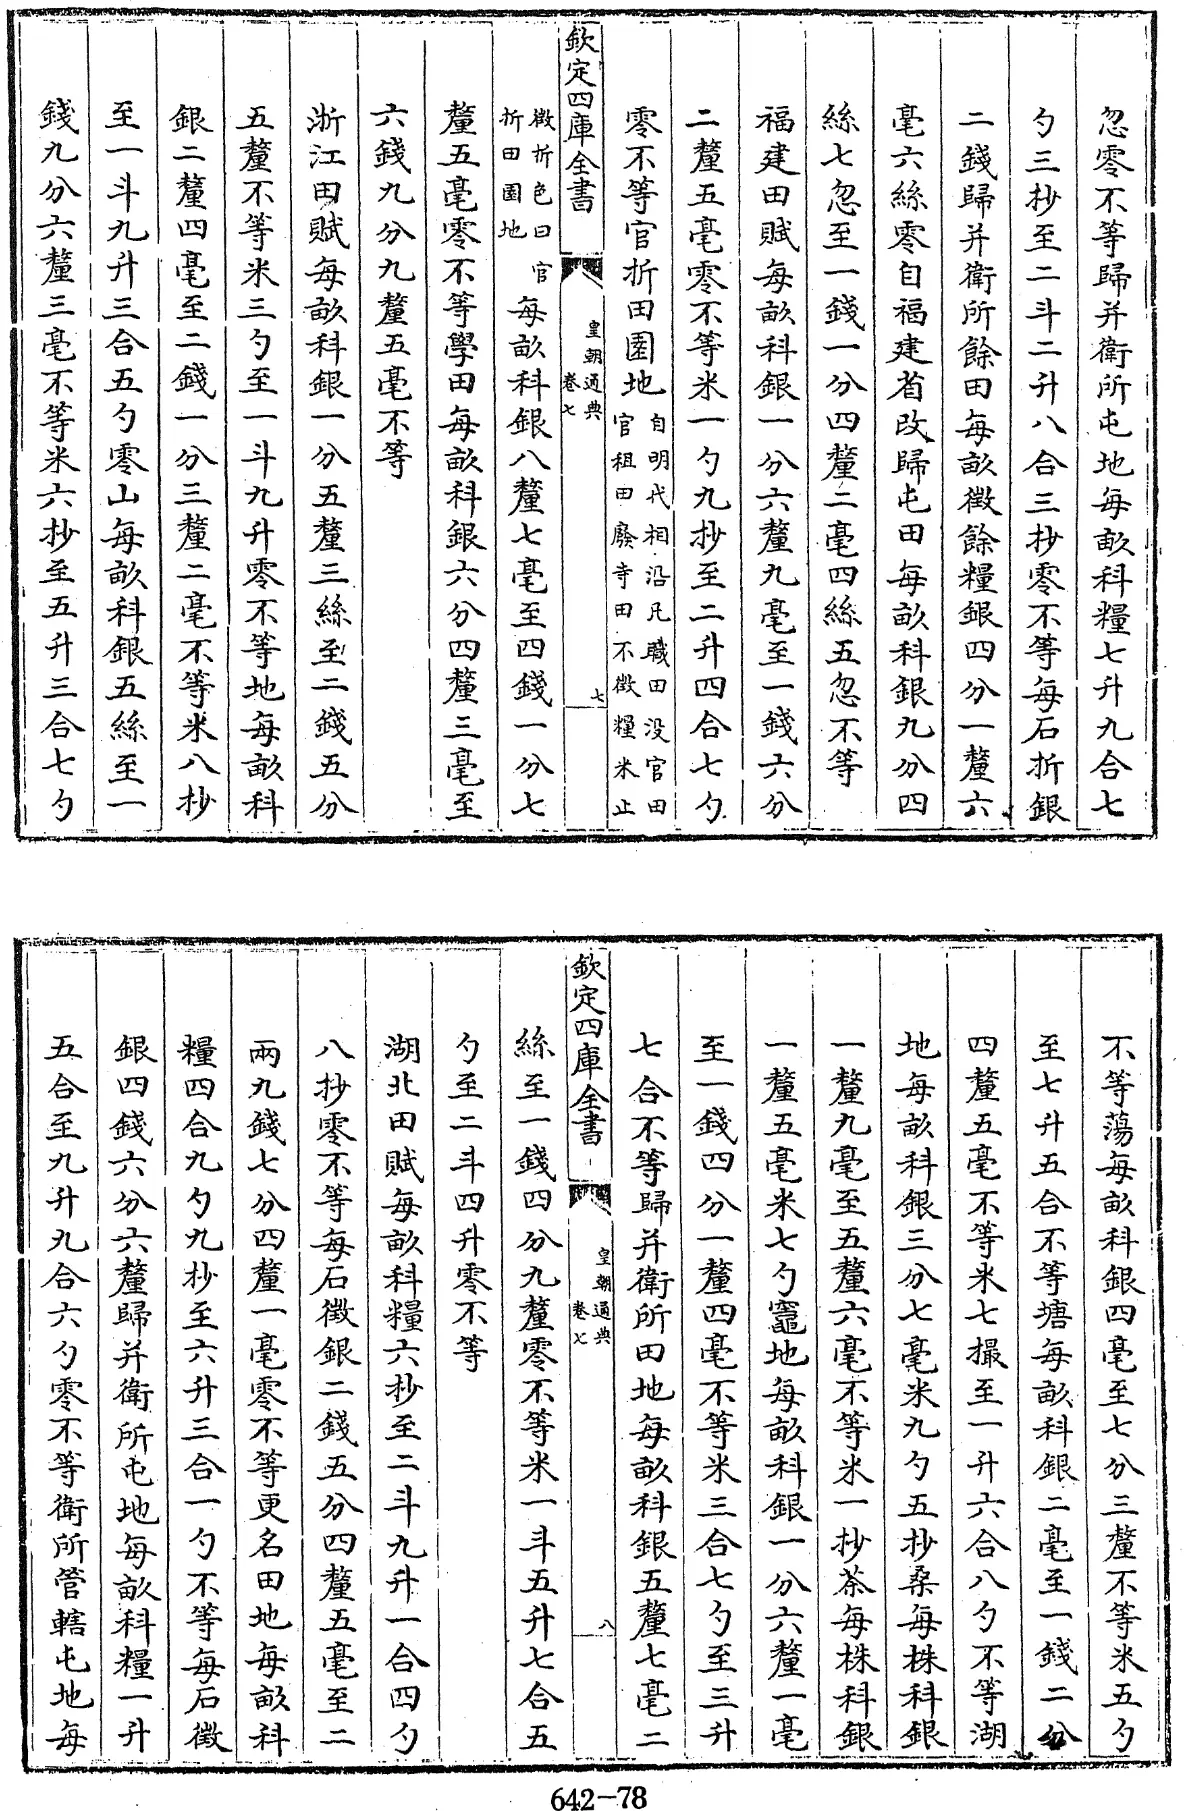 忽零不等歸并衛所屯地每畝科糧七升九合七
勺三抄至二斗二升八合三抄零不等每石折銀
二錢歸并衛所餘田每畝徵餘糧銀四分一釐六
毫六絲零自福建省改歸屯田每畝科銀九分四
絲七忽至一錢一分四釐二毫四絲五忽不等
福建田賦每畝科銀一分六釐九毫至一錢六分
二釐五毫零不等米一勺九抄至二升四合七勺
零不等官折田園地
自明代相沿凡職田没官田
官租田廢寺田不徵糧米止
欽定四庫全書
皇朝通典
卷七
七
徵折色曰官
折田園地
每畝科銀八釐七毫至四錢一分七
釐五毫零不等學田每畝科銀六分四釐三毫至
六錢九分九釐五毫不等
浙江田賦每畝科銀一分五釐三絲至二錢五分
五釐不等米三勺至一斗九升零不等地每畝科
銀二釐四毫至二錢一分三釐二毫不等米八抄
至一斗九升三合五勺零山每畝科銀五絲至一
錢九分六釐三毫不等米六抄至五升三合七勺
不等蕩每畝科銀四毫至七分三釐不等米五勺
至七升五合不等塘每畝科銀二毫至一錢二分
四釐五毫不等米七撮至一升六合八勺不等湖
地每畝科銀三分七毫米九勺五抄桑每株科銀
一釐九毫至五釐六毫不等米一抄茶每株科銀
一釐五毫米七勺竈地每畝科銀一分六釐一毫
至一錢四分一釐四毫不等米三合七勺至三升
七合不等歸并衛所田地每畝科銀五釐七毫二
欽定四庫全書
皇朝通典
卷七
八
絲至一錢四分九釐零不等米一斗五升七合五
勺至二斗四升零不等
湖北田賦每畝科糧六抄至二斗九升一合四勺
八抄零不等每石徵銀二錢五分四釐五毫至二
兩九錢七分四釐一毫零不等更名田地每畝科
糧四合九勺九抄至六升三合一勺不等每石徵
銀四錢六分六釐歸并衛所屯地每畝科糧一升
五合至九升九合六勺零不等衛所管轄屯地每
642—78